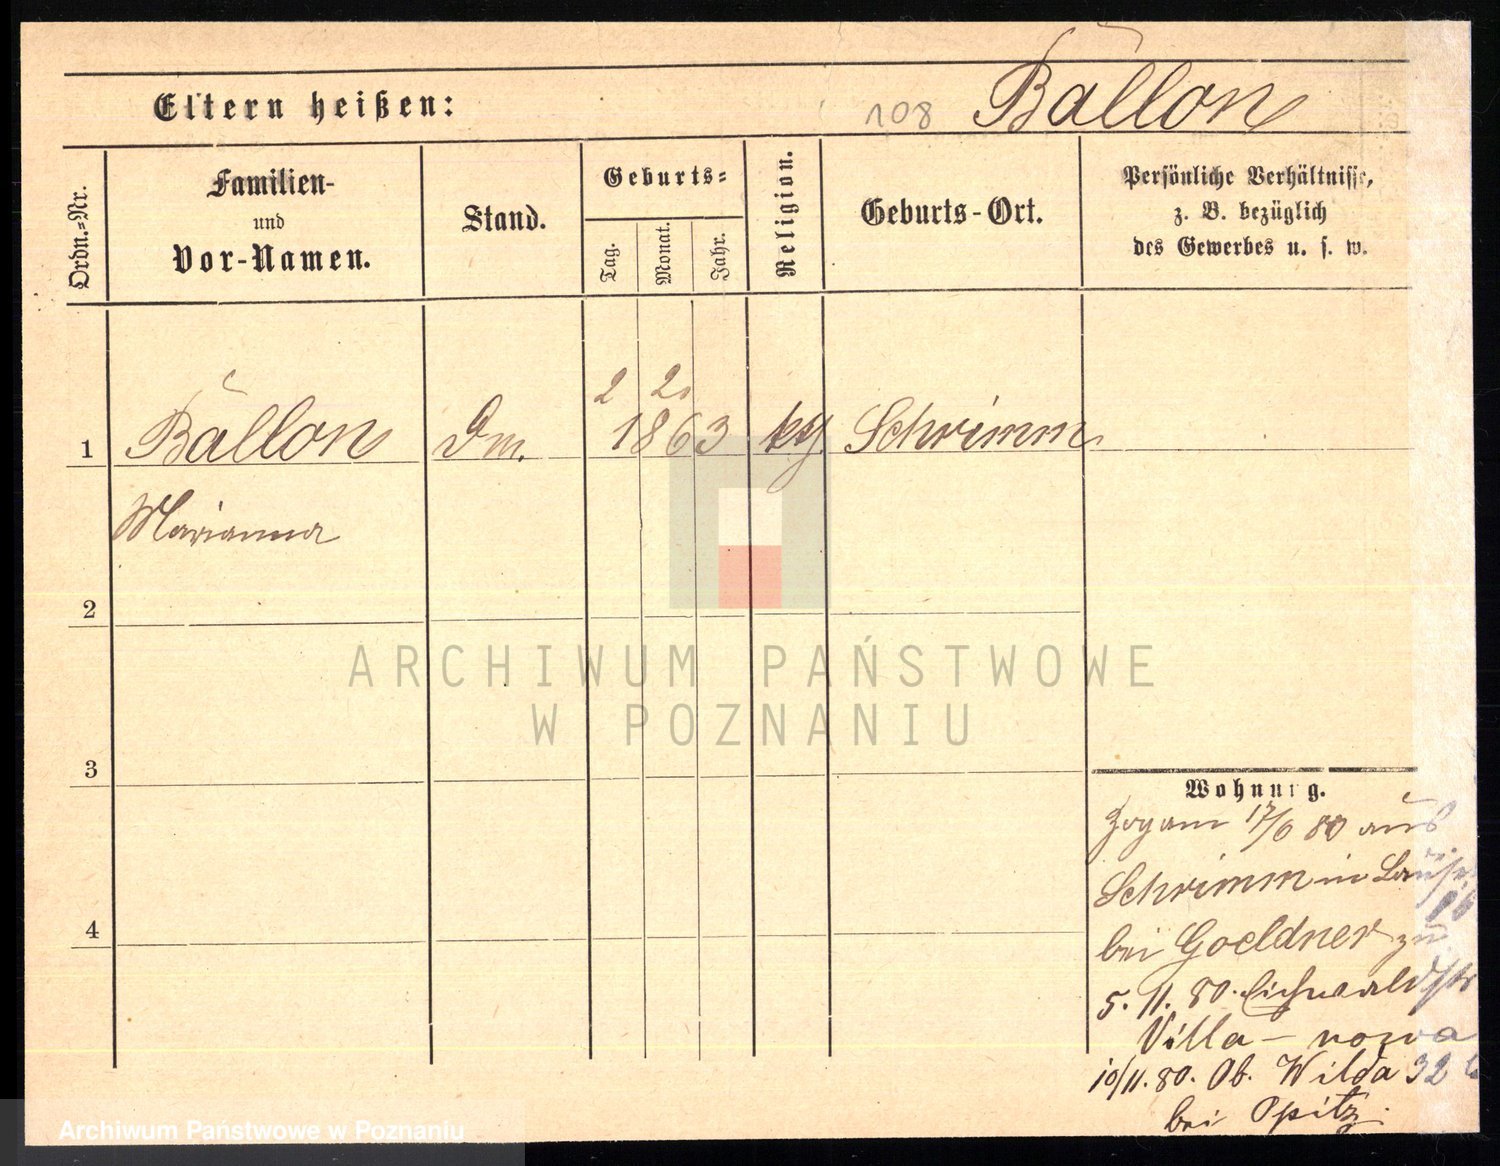 Eltern heißen:
108 Ballon
Ordn.-Nr.
Familien-
und
Vor-Namen.
Stand.
Geburts-
Tag.
Monat.
Jahr.
Religion.
Geburts-Ort.
Persönliche Verhältnisse,
z. B. bezüglich
des Gewerbes u. s. w.
2 2.
1 Ballon Dm. 1863 Schrimm
Marianna
2
3
4
ARCHIWUM PAŃSTWOWE
W POZNANIU
Wohnung.
Zog am 17/6 80 aus
Schrimm in
bei Goeldner zu
5. 11. 80. Eichwaldstr
Villa - nowa
10/11. 80. Ob. Wilda 32
bei Opitz.
Archiwum Państwowe w Poznaniu